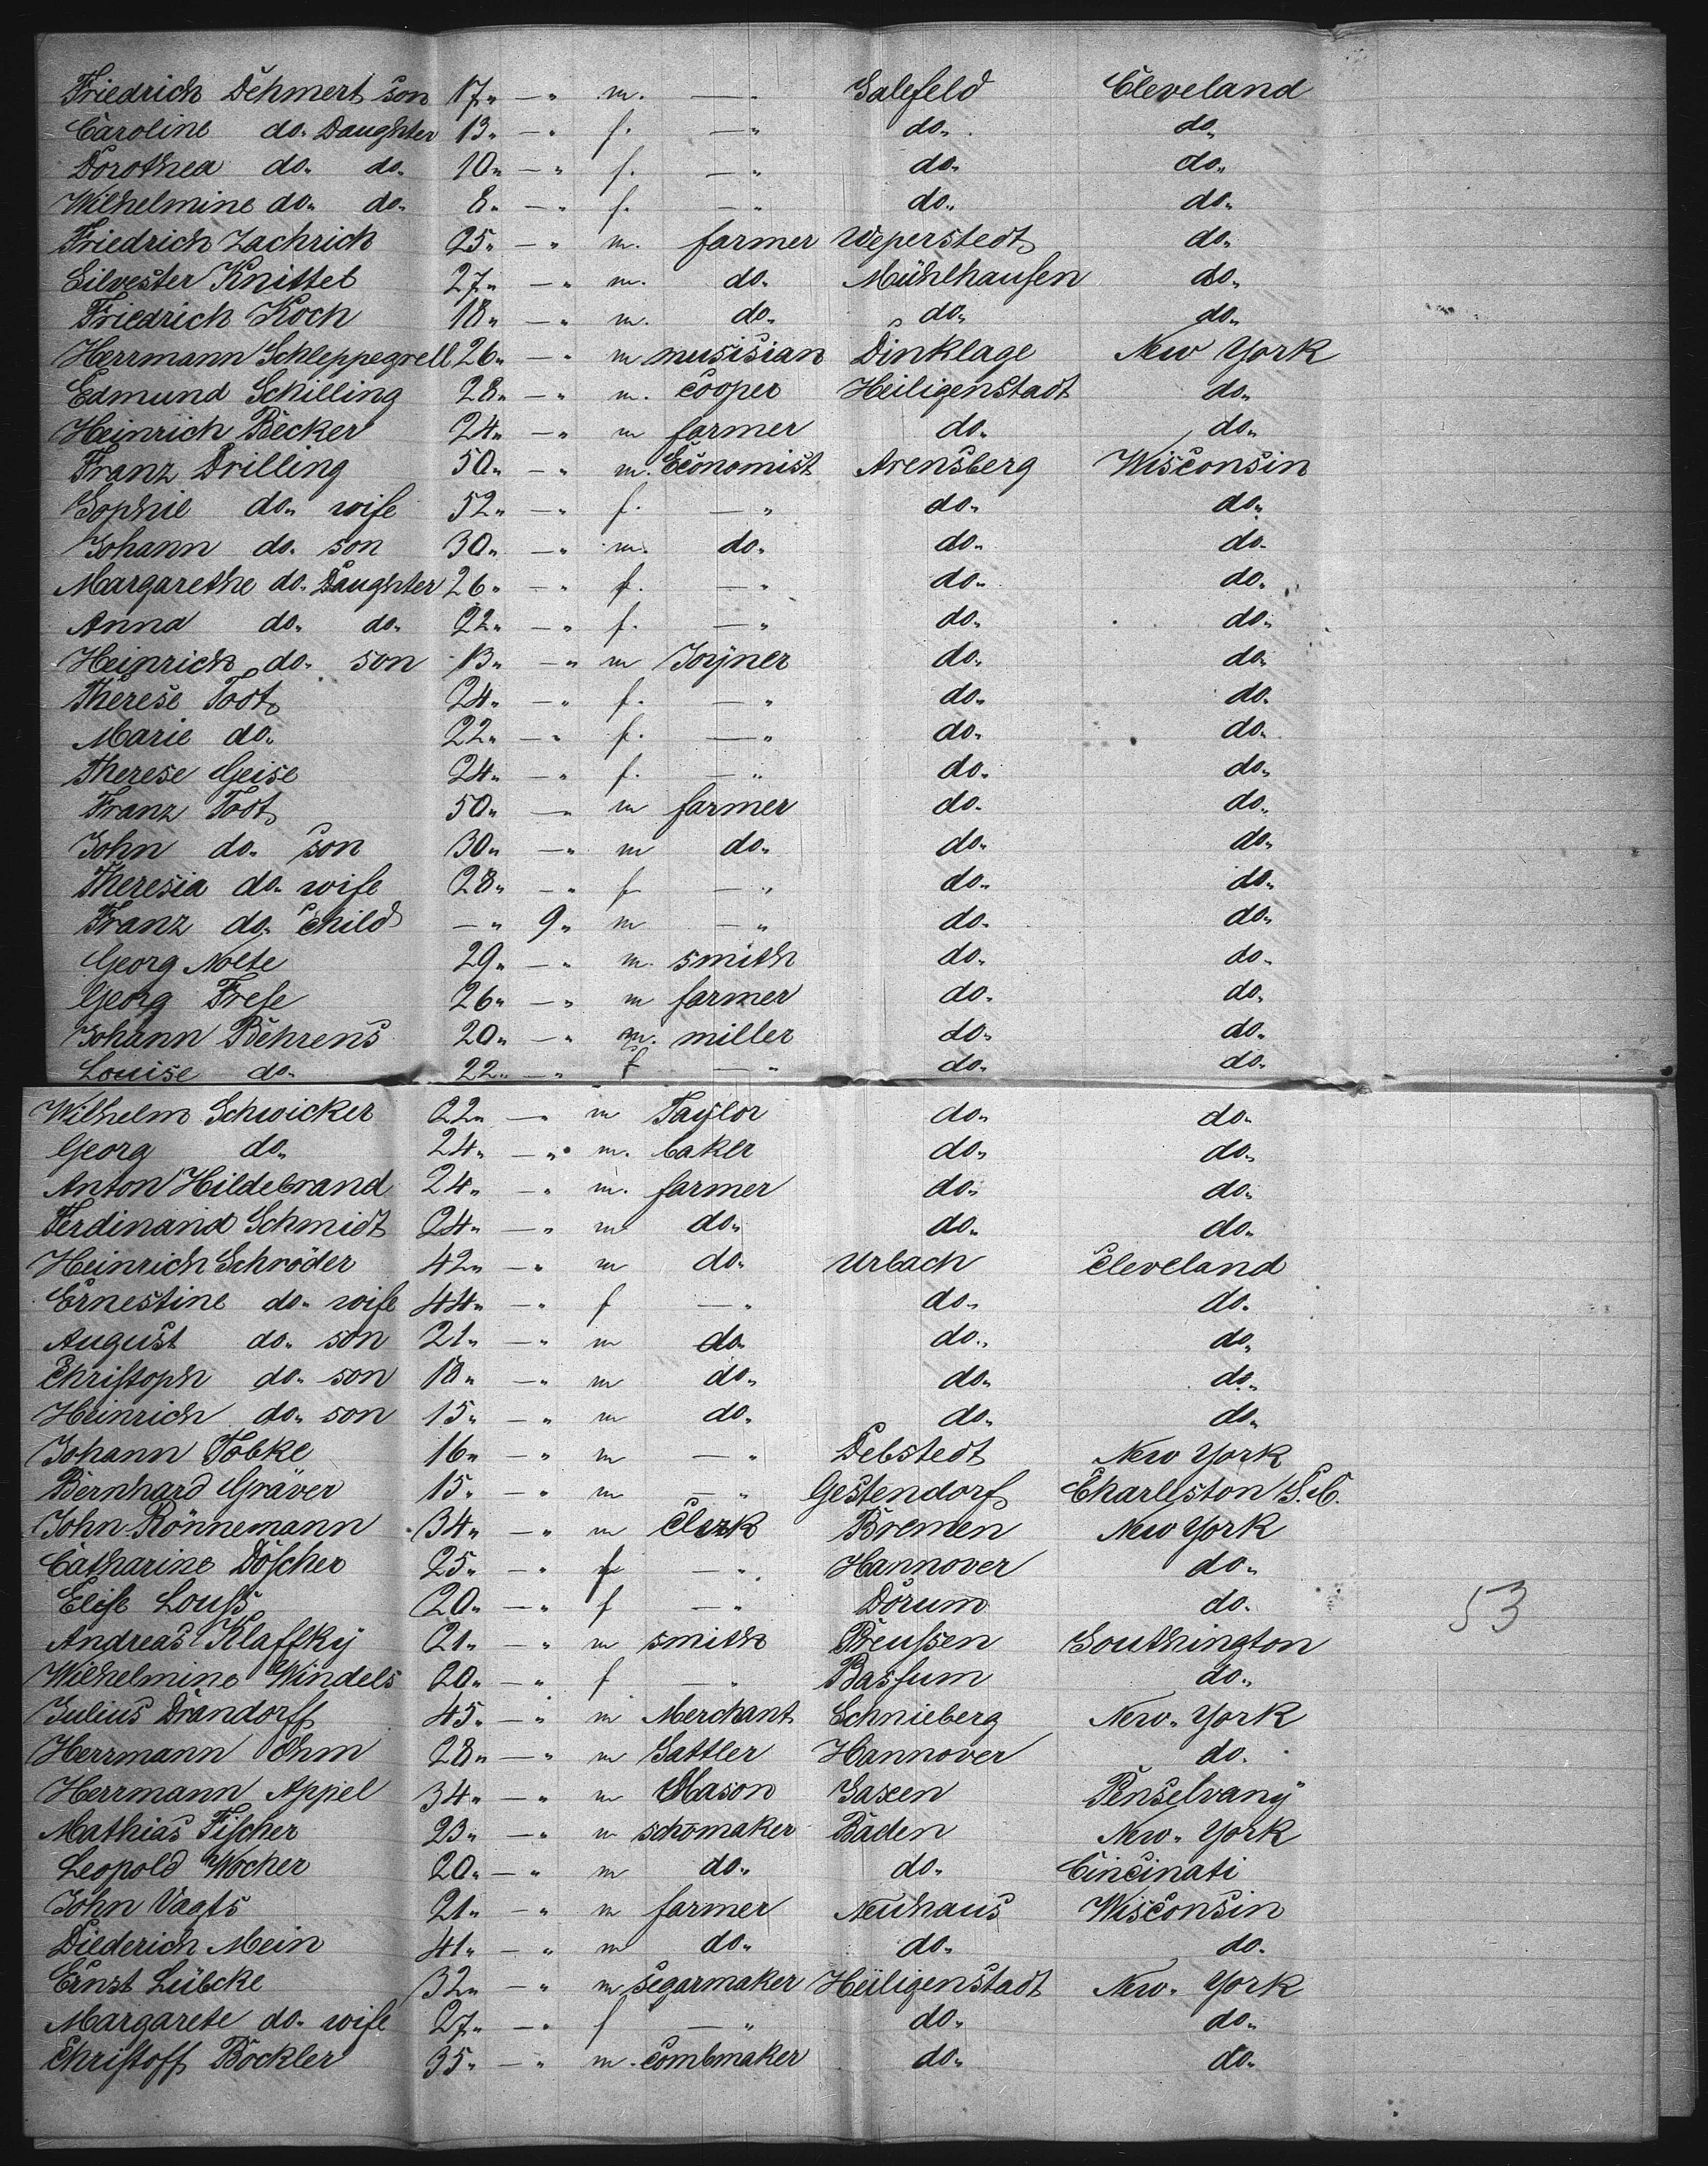 Friedrich Dehmert son 17 „ — „ m. — „ Salefeld Cleveland
Caroline do. Daughter 13 „ — „ f. — „ do. do.
Dorothea do. do. 10 „ — „ f. — „ do. do.
Wilhelmine do. do. 8 „ — „ f. — „ do. do.
Friedrich Zachrich 25 „ — „ m. farmer Weperstedt do.
Silvester Knittel 27 „ — „ m. do. Mühlhausen do.
Friedrich Koch 18 „ — „ m. do. do. do.
Herrmann Schleppegrell 26 „ — „ m musisian Dinklage New York
Edmund Schilling 28 „ — „ m. Cooper Heiligenstadt do.
Heinrich Becker 24 „ — „ m farmer do. do.
Franz Drilling 50 „ — „ m. Economist Arensberg Wisconsin
Sophie do. wife 52 „ — „ f. — „ do. do.
Johann do. son 30 „ — „ m. do. do. do.
Margarethe do. Daughter 26 „ — „ f. — „ do. do.
Anna do. do. 22 „ — „ f. — „ do. do.
Heinrich do. son 13 „ — „ m Joyner do. do.
Therese Todt 24 „ — „ f. — „ do. do.
Marie do. 22 „ — „ f. — „ do. do.
Therese Geise 24 „ — „ f. — „ do. do.
Franz Todt 50 „ — „ m farmer do. do.
John do. son 30 „ — „ m do. do. do.
Theresia do. wife 28 „ — „ f — „ do. do.
Franz do. Child — „ 9 „ m — „ do. do.
Georg Nolte 29 „ — „ m. smith do. do.
Georg Frese 26 „ — „ m farmer do. do.
Johann Behrens 20 „ — „ m. miller do. do.
Louise do. 22 „ — „ f — „ do. do.
Wilhelm Schwicker 22 „ — „ m Taylor do. do.
Georg do. 24 „ — „ m. baker do. do.
Anton Hildebrand 24 „ — „ m. farmer do. do.
Ferdinand Schmidt 24 „ — „ m do. do. do.
Heinrich Schröder 42 „ — „ m do. Urbach Cleveland
Ernestine do. wife 44 „ — „ f — „ do. do.
August do. son 21 „ — „ m do. do. do.
Christoph do. son 18 „ — „ m do. do. do.
Heinrich do. son 15 „ — „ m do. do. do.
Johann Tobke 16 „ — „ m — „ Debstedt New York
Bernhard Gräver 15 „ — „ m — „ Gestendorf Charlston S.C.
John Rönnemann 34 „ — „ m Clerk Bremen New York
Catharine Döscher 25 „ — „ f — „ Hannover do.
Elise Louss 20 „ — „ f — „ Dorum do.
Andreas Klaffky 21 „ — „ m smith Preussen Southington
Wilhelmine Windels 20 „ — „ f — „ Bassum do.
Julius Drandorff 45 „ — „ m Merchant Schnieberg New. York
Herrmann Ohm 28 „ — „ m Sattler Hannover do.
Herrmann Appel 34 „ — „ m Mason Saxen Penselvany
Mathias Fischer 23 „ — „ m schomaker Baden New. York
Leopold Wocher 20 „ — „ m do. do. Cincinati
John Vagts 21 „ — „ m farmer Neuhaus Wisconsin
Diederich Mein 41 „ — „ m do. do. do.
Ernst Lübcke 32 „ — „ m segarmaker Heiligenstadt New. York
Margarete do. wife 27 „ — „ f — „ do. do.
Christoff Böckler 35 „ — „ m. Combmaker do. do.
53